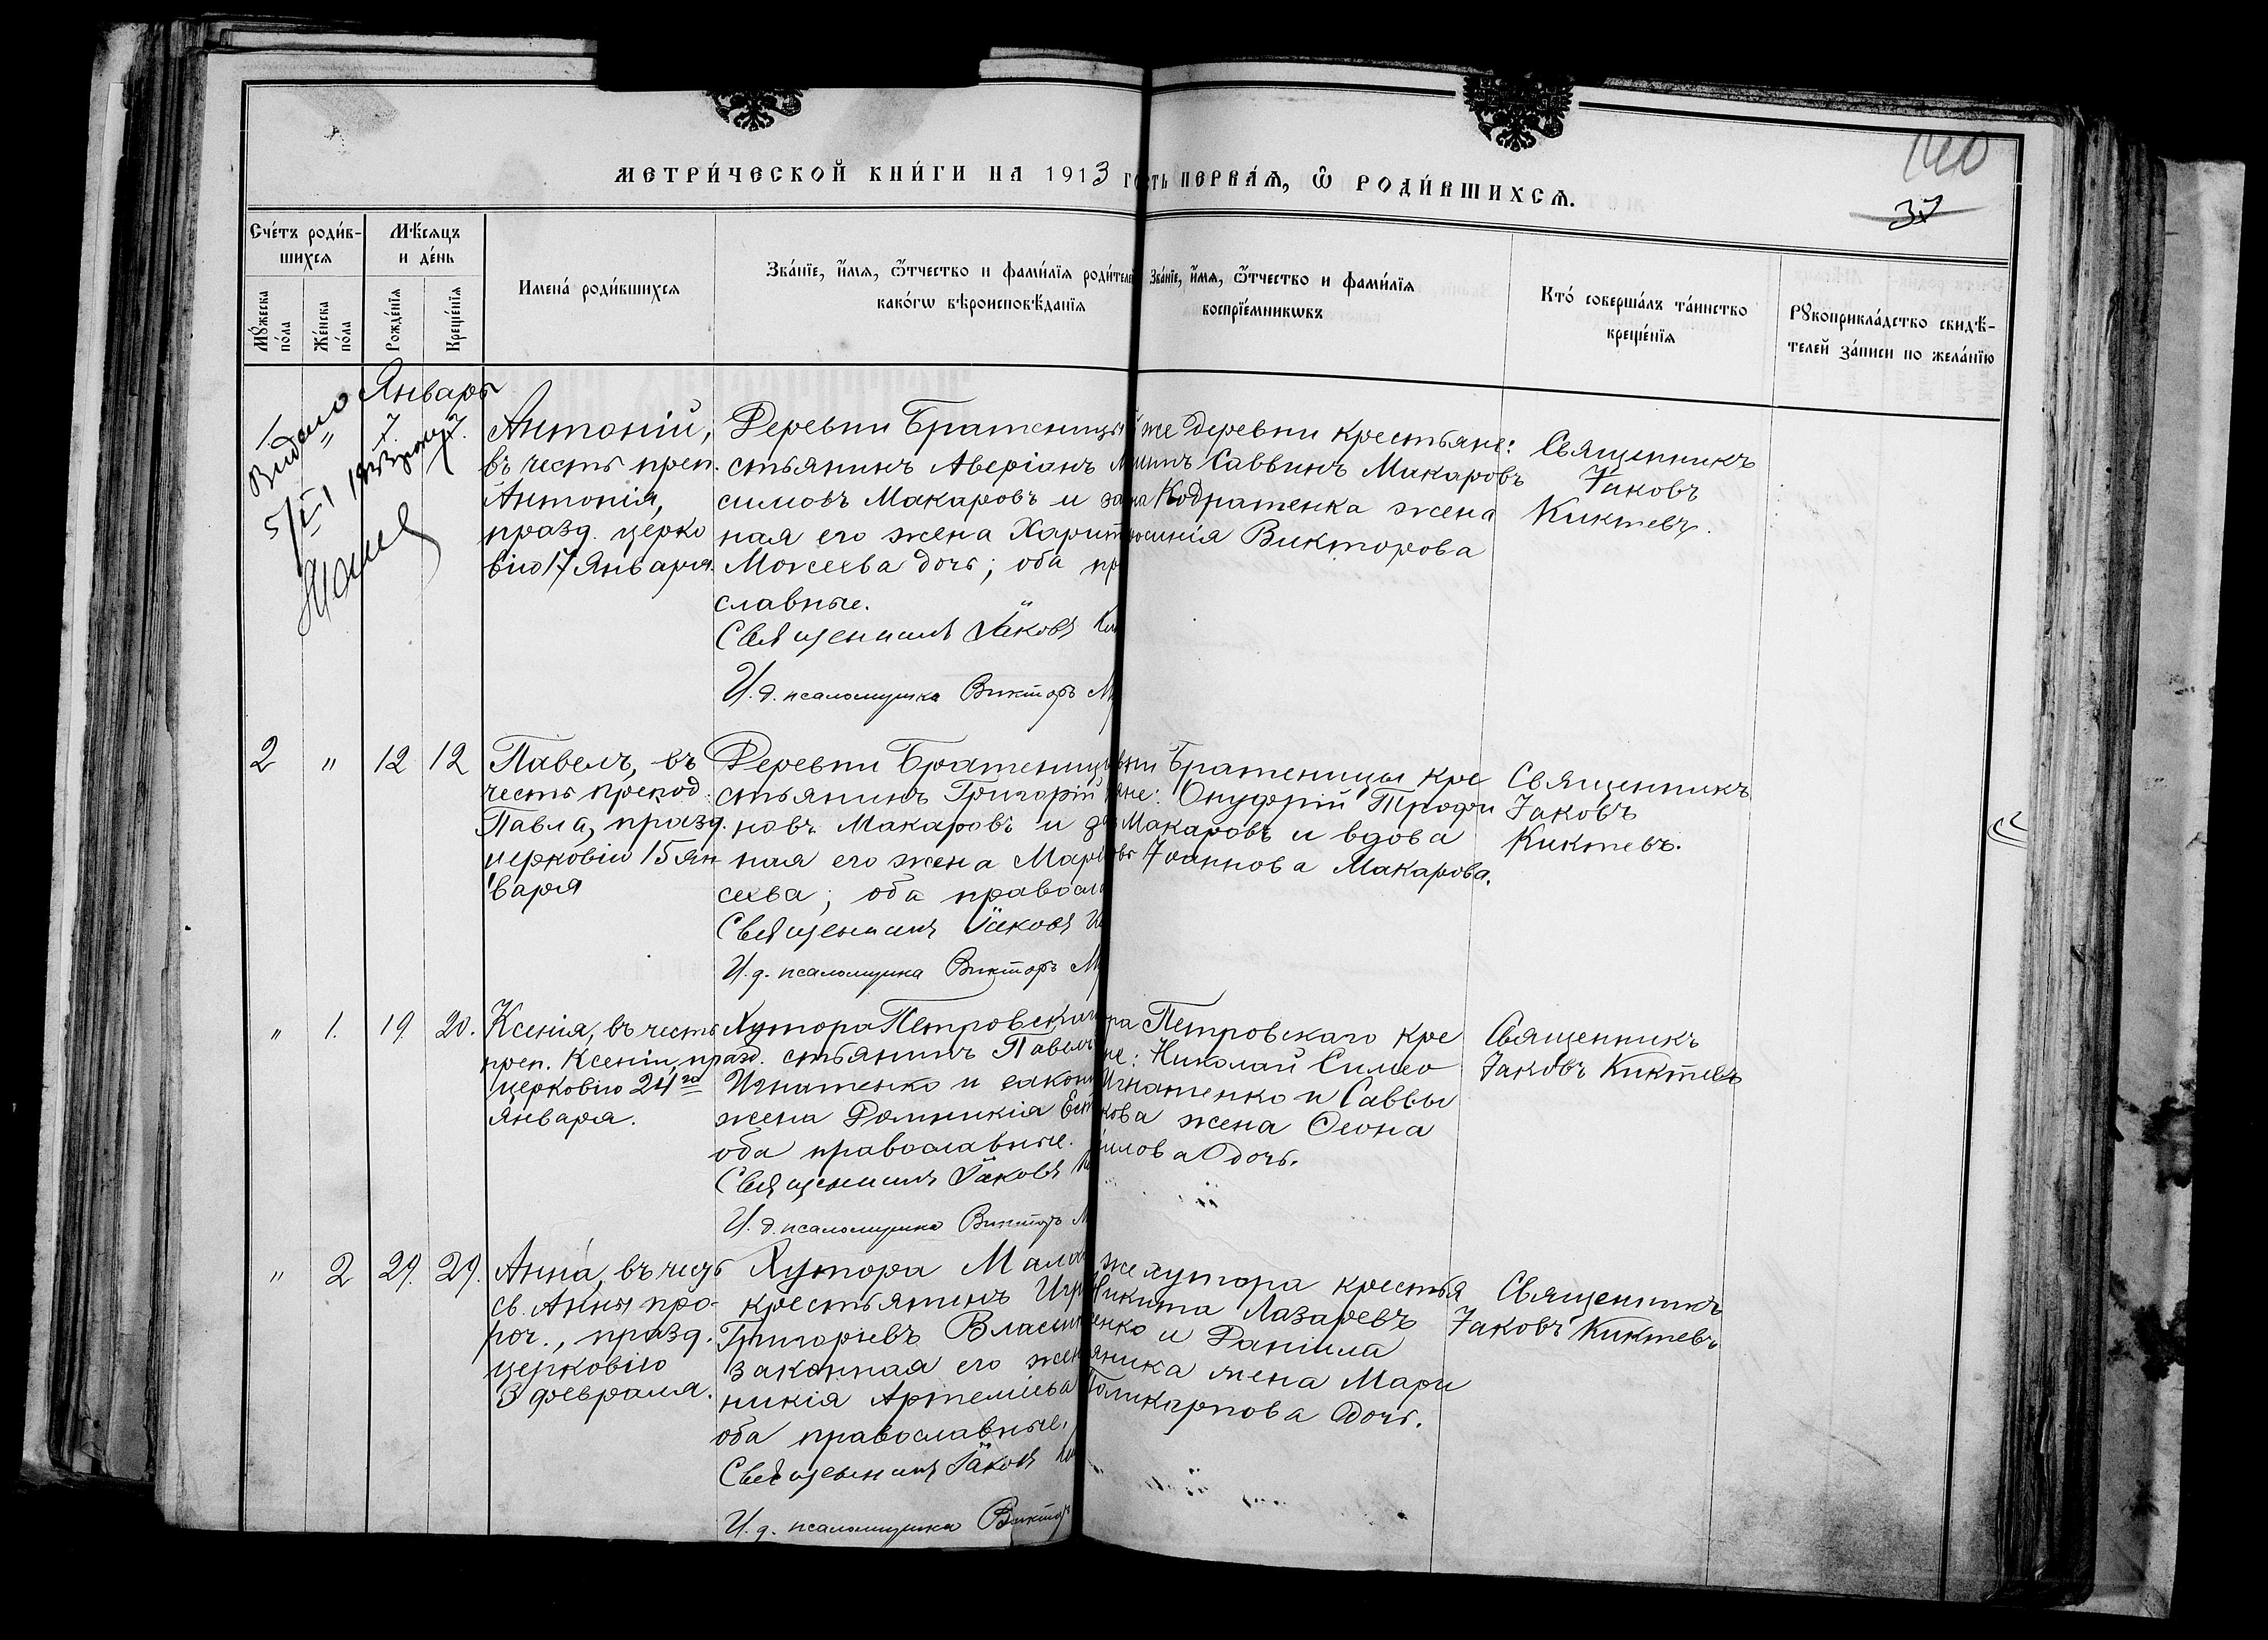 140
МЕТРИ́ЧЕСКОЙ КНИ́ГИ НА 1913 ГО
СТЬ ПЕРВА́Ѧ, Ѽ РОДИ́ВШИХСѦ.
37
Сче́тъ роди́в-
шихся
Мѣ́сяцъ
и де́нь
Мꙋ́жеска
по́ла
Же́нска
по́ла
Рожде́нїя
Креще́нїя
Имена́ роди́вшихся
Зва́нїе, и҆́мя, ѻ҆́тчество и фами́лїя роди́телей
како́гѡ вѣроисповѣ́данїя
Зва́нїе, и҆́мя, ѻ҆́тчество и фами́лїя
воспрїе́мникѡвъ
Кто́ соверша́лъ та́инство
креще́нїя
Рꙋкоприкла́дство свидѣ́-
телей за́писи по жела́нїю
Январь
1 " 7. 7.
Видано
5/VI
Антоній,
въ честь преп.
Антонія,
празд. церко
вію 17 Января.
Деревни Братеницы
стьянинъ Аверіанъ М
симовъ Макаровъ и за
ная его жена Харит
Моисеева дочь; оба пр
славные.
Священникъ Іаковъ Ки
И. д. псаломщика Викторъ М
же деревни крестьяне:
Саввинъ Макаровъ
Кодратенка жена
синія Викторова
Священникъ
Іаковъ
Киктевъ.
2 " 12 12
Павелъ, въ
честь препод.
Павла, празд.
церковію 15 ян
варя
Деревни Братеницы,
стьянинъ Григорій
новъ Макаровъ и за
ная его жена Марі
сеева; оба правосл
Священникъ Іаковъ Ки
И. д. псаломщика Викторъ М
вни Братеницы кре
яне: Онуфрій Трофи
Макаровъ и вдова
Іоаннова Макарова.
Священникъ
Іаковъ
Киктевъ.
" 1. 19. 20.
Ксенія, въ честь
преп. Ксеніи, празд.
церковію 24го
Января.
Хутора Петровскаго
стьянинъ Павелъ
Игнатенко и закон
жена Домникія Ев
оба православные.
Священникъ Іаковъ Ки
И. д. псаломщика Викторъ М
ра Петровскаго кре
не: Николай Симео
Игнатенко и Саввы
кова жена Ѳеона
илова дочь.
Священникъ
Іаковъ Киктевъ
" 2 29. 29.
Анна, въ честь
св. Анны про-
роч., празд.
церковію
3 февраля.
Хутора Мала
крестьянинъ Игн
Григорьевъ Власенк
законная его жен
никія Артеміева
оба православные.
Священникъ Іаковъ Ки
И. д. псаломщика Виктор
же хутора крестья
Никита Лазаревъ
енко и Даніила
яника жена Мари
Поликарпова дочь.
Священникъ
Іаковъ Киктевъ